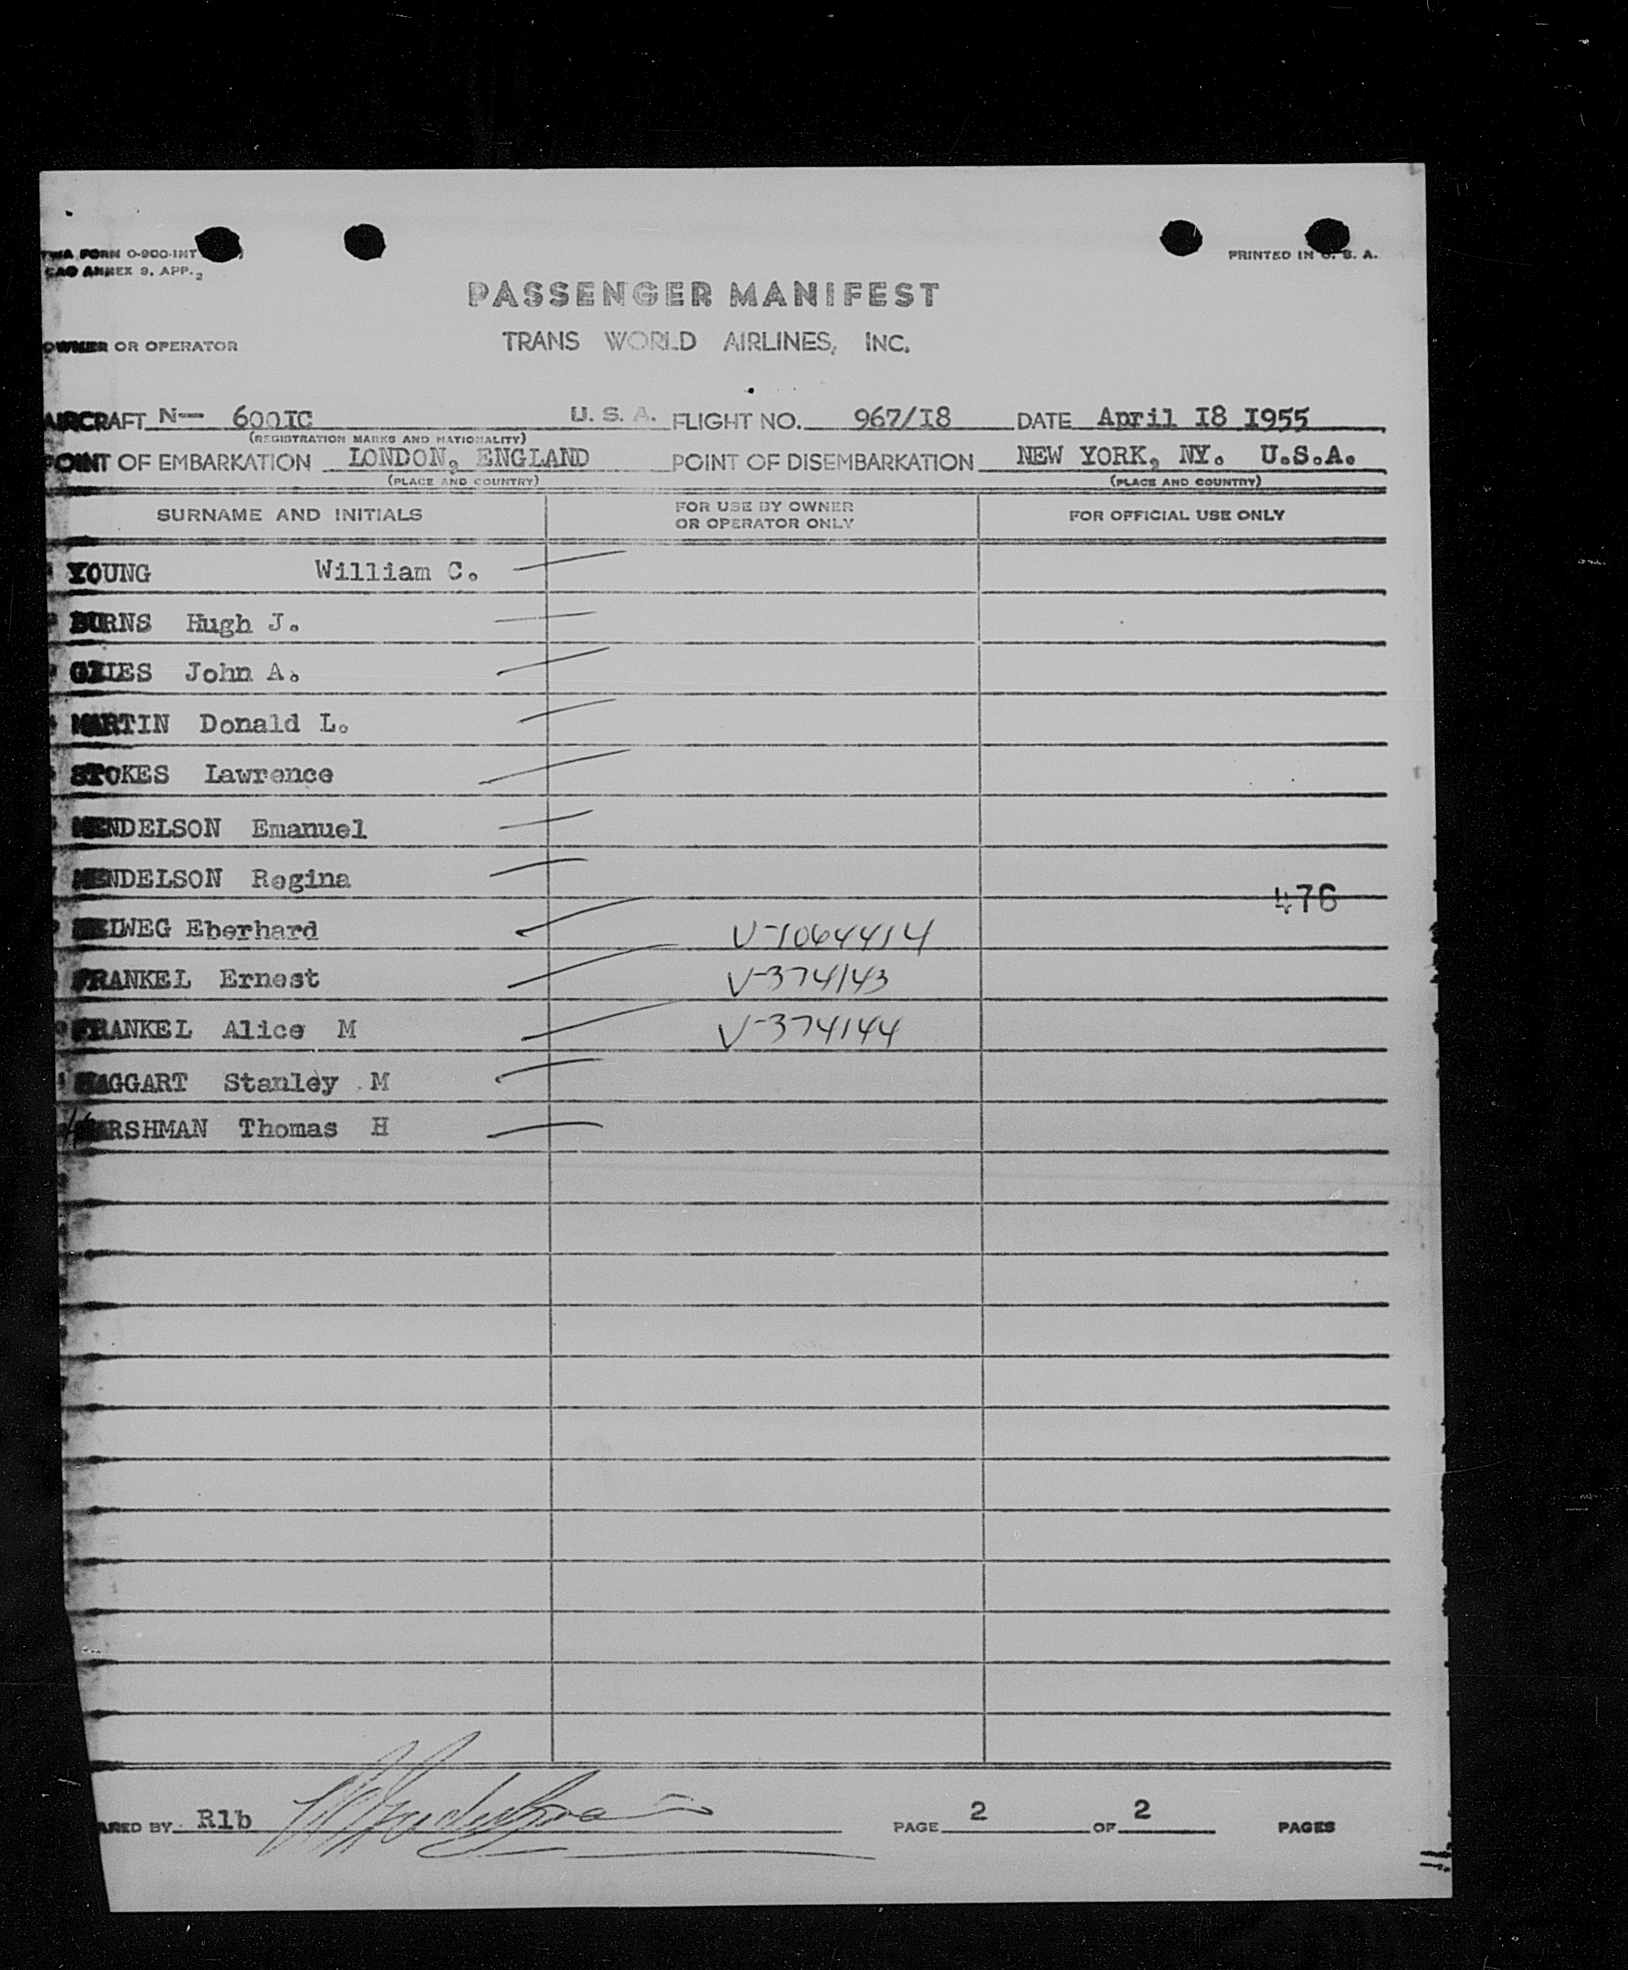 TWA FORM O-900-INT
ICAO ANNEX 9, APP. 2
PRINTED IN U. S. A.
PASSENGER MANIFEST
OWNER OR OPERATOR
TRANS WORLD AIRLINES, INC.
AIRCRAFT N— 600IC U. S. A. FLIGHT NO. 967/I8 DATE April I8 I955
(REGISTRATION MARKS AND NATIONALITY)
POINT OF EMBARKATION LONDON, ENGLAND POINT OF DISEMBARKATION NEW YORK, NY. U.S.A.
(PLACE AND COUNTRY) (PLACE AND COUNTRY)
SURNAME AND INITIALS FOR USE BY OWNER OR OPERATOR ONLY FOR OFFICIAL USE ONLY
YOUNG William C.
BURNS Hugh J.
John A.
MARTIN Donald L.
STOKES Lawrence
MENDELSON Emanuel
MENDELSON Regina
476
Eberhard V-1064414
FRANKEL Ernest V-374143
FRANKEL Alice M V-374144
HAGGART Stanley M
HARSHMAN Thomas H
PREPARED BY Rlb PAGE 2 OF 2 PAGES